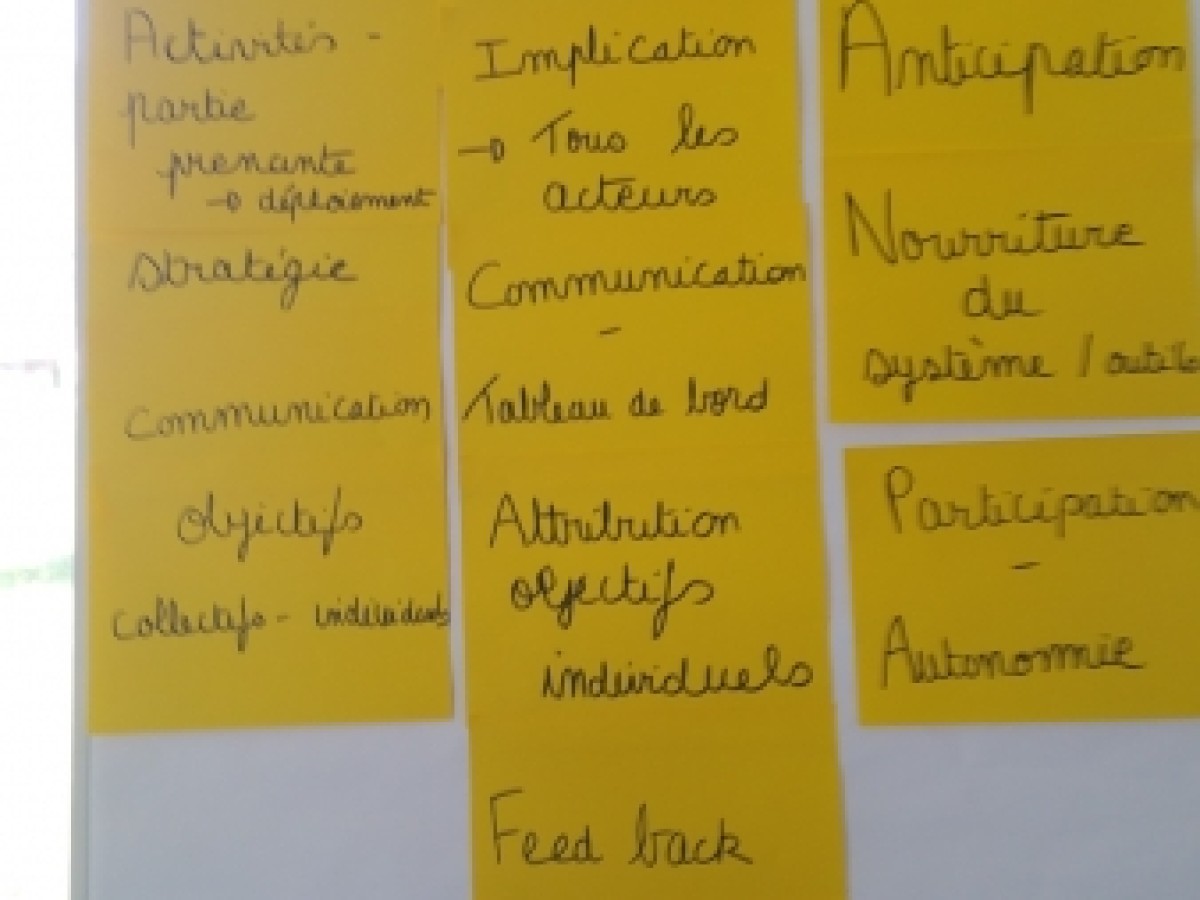 Activités -
partie
prenante
→ déploiement
Stratégie
Communication
Objectifs
collectifs - individuels
Implication
→ Tous les
acteurs
Communication
-
Tableau de bord
Attribution
objectifs
individuels
Feed back
Anticipation
Nourriture
du
système / outils
Participation
-
Autonomie